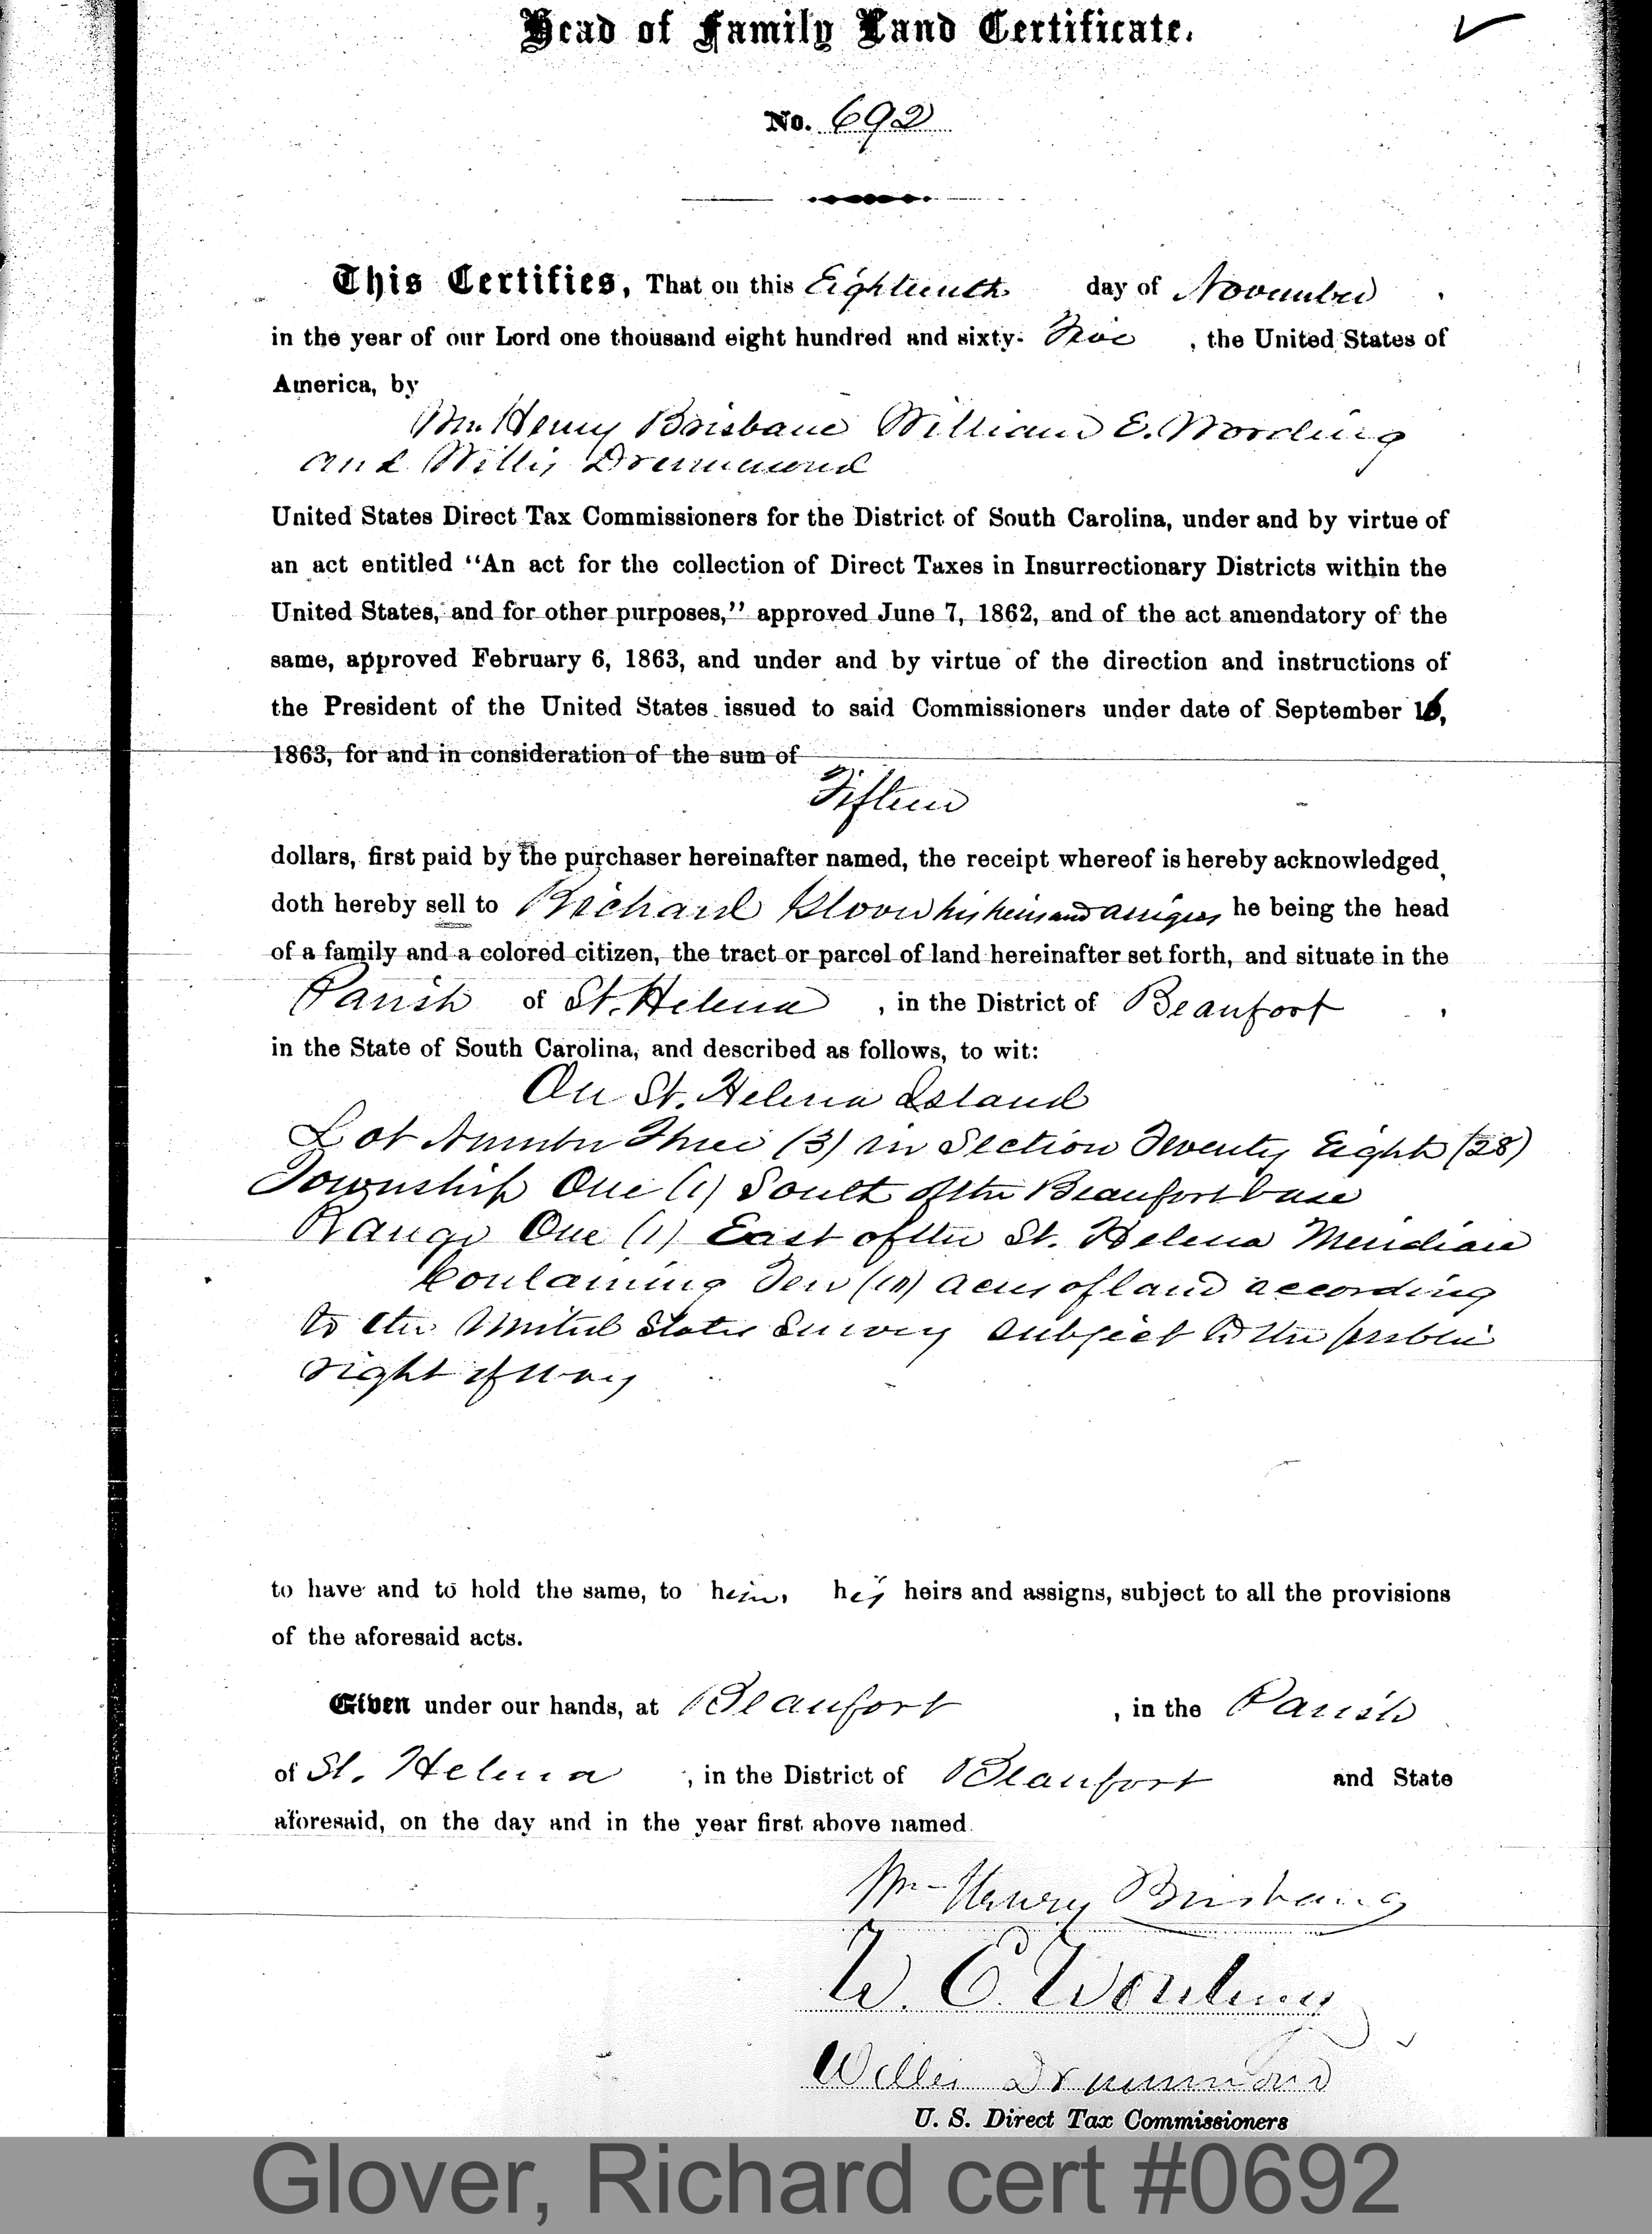 Head of Family Land Certificate.
No. 692
This Certifies, That on this Eighteenth day of November
in the year of our Lord one thousand eight hundred and sixty-five, the United States of
America, by
Wm. Henry Brisbane William E. Wording
and Willis Drummond
United States Direct Tax Commissioners for the District of South Carolina, under and by virtue of
an act entitled "An act for the collection of Direct Taxes in Insurrectionary Districts within the
United States, and for other purposes," approved June 7, 1862, and of the act amendatory of the
same, approved February 6, 1863, and under and by virtue of the direction and instructions of
the President of the United States issued to said Commissioners under date of September 16,
1863, for and in consideration of the sum of
Fifteen
dollars, first paid by the purchaser hereinafter named, the receipt whereof is hereby acknowledged,
doth hereby sell to Richard Glover his heirs and assigns he being the head
of a family and a colored citizen, the tract or parcel of land hereinafter set forth, and situate in the
Parish of St. Helena, in the District of Beaufort,
in the State of South Carolina, and described as follows, to wit:
On St. Helena Island
Lot Number Three (3) in Section Twenty Eight (28)
Township One (1) South of the Beaufort base
Range One (1) East of the St. Helena Meridian
Containing Ten (10) acres of land according
to the United States Survey subject to the public
right of way
to have and to hold the same, to him, his heirs and assigns, subject to all the provisions
of the aforesaid acts.
Given under our hands, at Beaufort, in the Parish
of St. Helena, in the District of Beaufort and State
aforesaid, on the day and in the year first above named.
Wm Henry Brisbane
W. E. Wording
Willis Drummond
U. S. Direct Tax Commissioners
Glover, Richard cert #0692